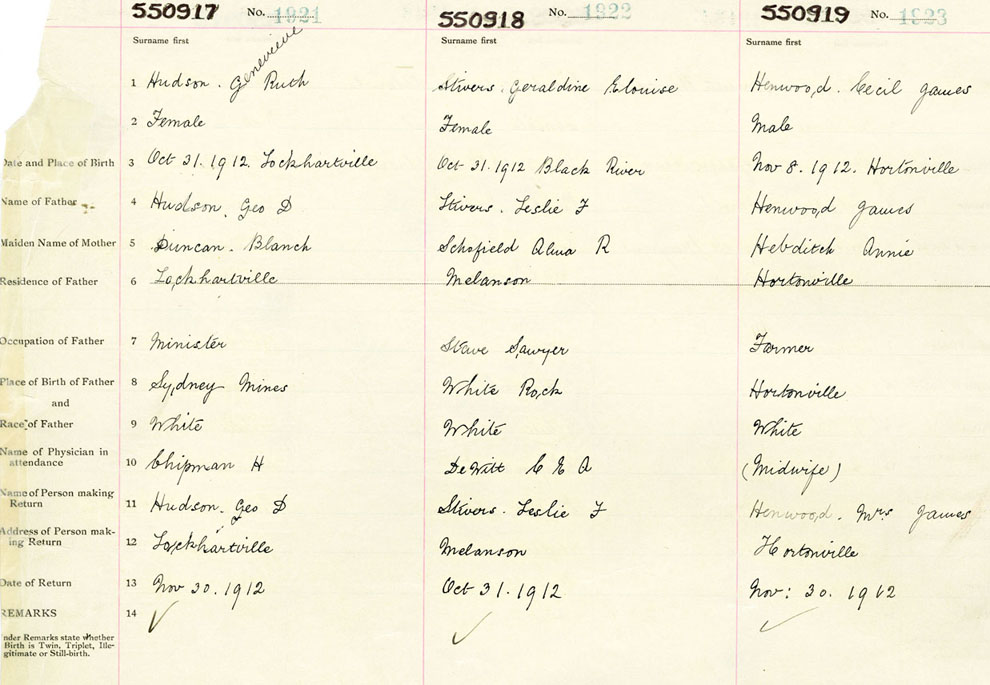 550917 No. 1921
550918 No. 1822
550919 No. 1823
Surname first Surname first Surname first
Genevieve
1 Hudson. Ruth Stivers. Geraldine Elouise Henwood. Cecil James
2 Female Female Male
Date and Place of Birth 3 Oct 31. 1912 Lockhartville Oct 31. 1912 Black River Nov 8. 1912. Hortonville
Name of Father 4 Hudson. Geo D Stivers. Leslie F Henwood James
Maiden Name of Mother 5 Duncan. Blanch Schofield Alma R Hebditch Annie
Residence of Father 6 Lockhartville Melanson Hortonville
Occupation of Father 7 Minister Stave Sawyer Farmer
Place of Birth of Father 8 Sydney Mines White Rock Hortonville
and
Race of Father 9 White White White
Name of Physician in
attendance 10 Chipman H DeWitt C E A (Midwife)
Name of Person making
Return 11 Hudson. Geo D Stivers. Leslie F Henwood. Mrs James
Address of Person mak-
ing Return 12 Lockhartville Melanson Hortonville
Date of Return 13 Nov 30. 1912 Oct 31. 1912 Nov: 30. 1912
REMARKS 14
nder Remarks state whether
Birth is Twin, Triplet, Ille-
gitimate or Still-birth.